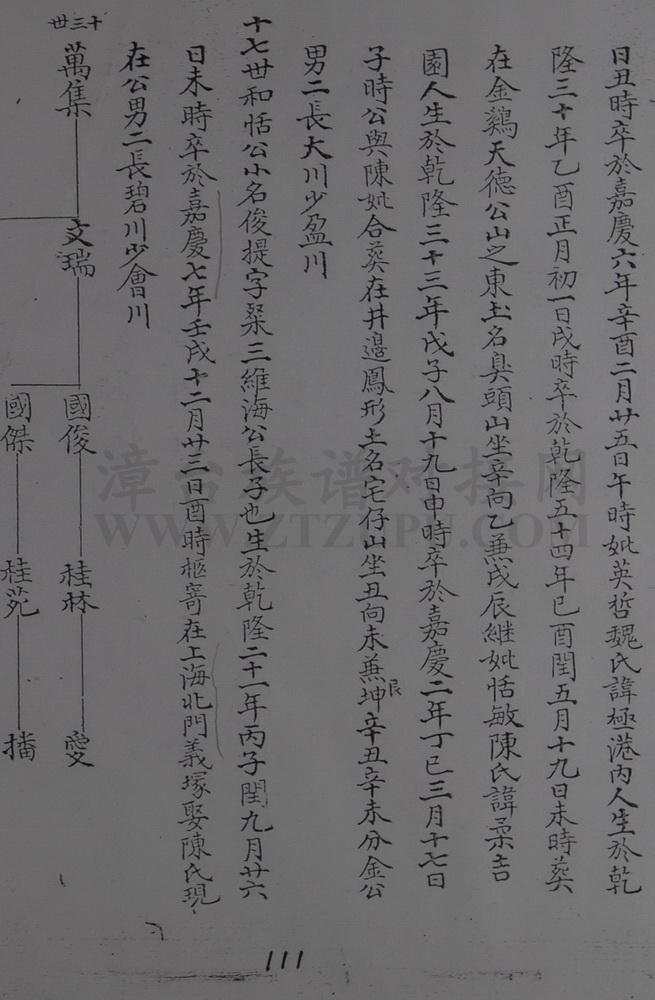 日丑時卒於嘉慶六年辛酉二月廿五日午時妣英哲魏氏諱極港內人生於乾
隆三十年乙酉正月初一日戌時卒於乾隆五十四年已酉閏五月十九日未時葬
在金鷄天德公山之東土名臭頭山坐辛向乙兼戌辰繼妣恬敏陳氏諱柔吉
園人生於乾隆三十三年戊子八月十九日申時卒於嘉慶二年丁巳三月十七日
子時公與陳妣合葬在井邊鳳形土名宅仔山坐丑向未兼坤艮辛丑辛未分金公
男二長大川少盈川
十七世和恬公小名俊提字粲三維海公長子也生於乾隆二十一年丙子閏九月廿六
日未時卒於嘉慶七年壬戌十二月廿三日酉時柩寄在上海北門義塚娶陳氏現
在公男二長碧川少會川
十三世
萬集
文瑞
國俊 桂林 愛
國傑 桂苑 播
漳台族谱对接网
WWW.ZTZUPU.COM
111